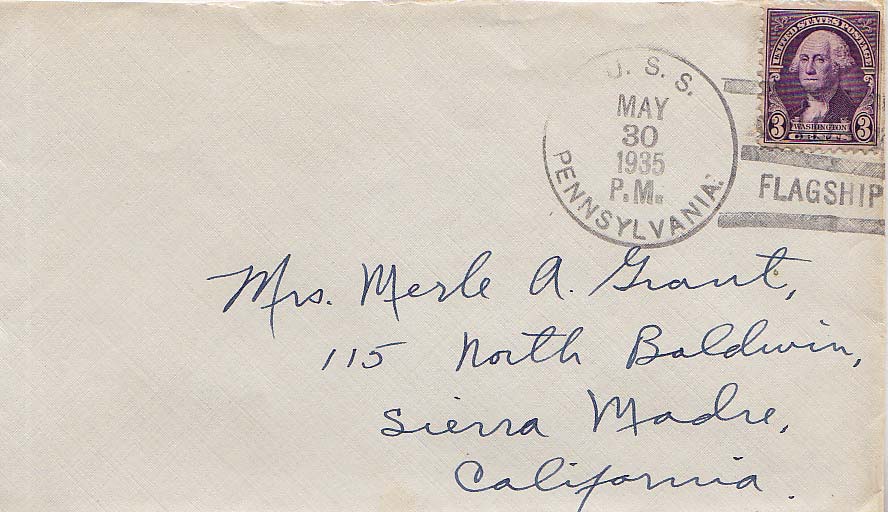 UNITED STATES POSTAGE
3 WASHINGTON 3
CENTS
U. S. S.
MAY
30
1935
P.M.
PENNSYLVANIA.
FLAGSHIP
Mrs. Merle A. Grant,
115 North Baldwin,
Sierra Madre,
California.